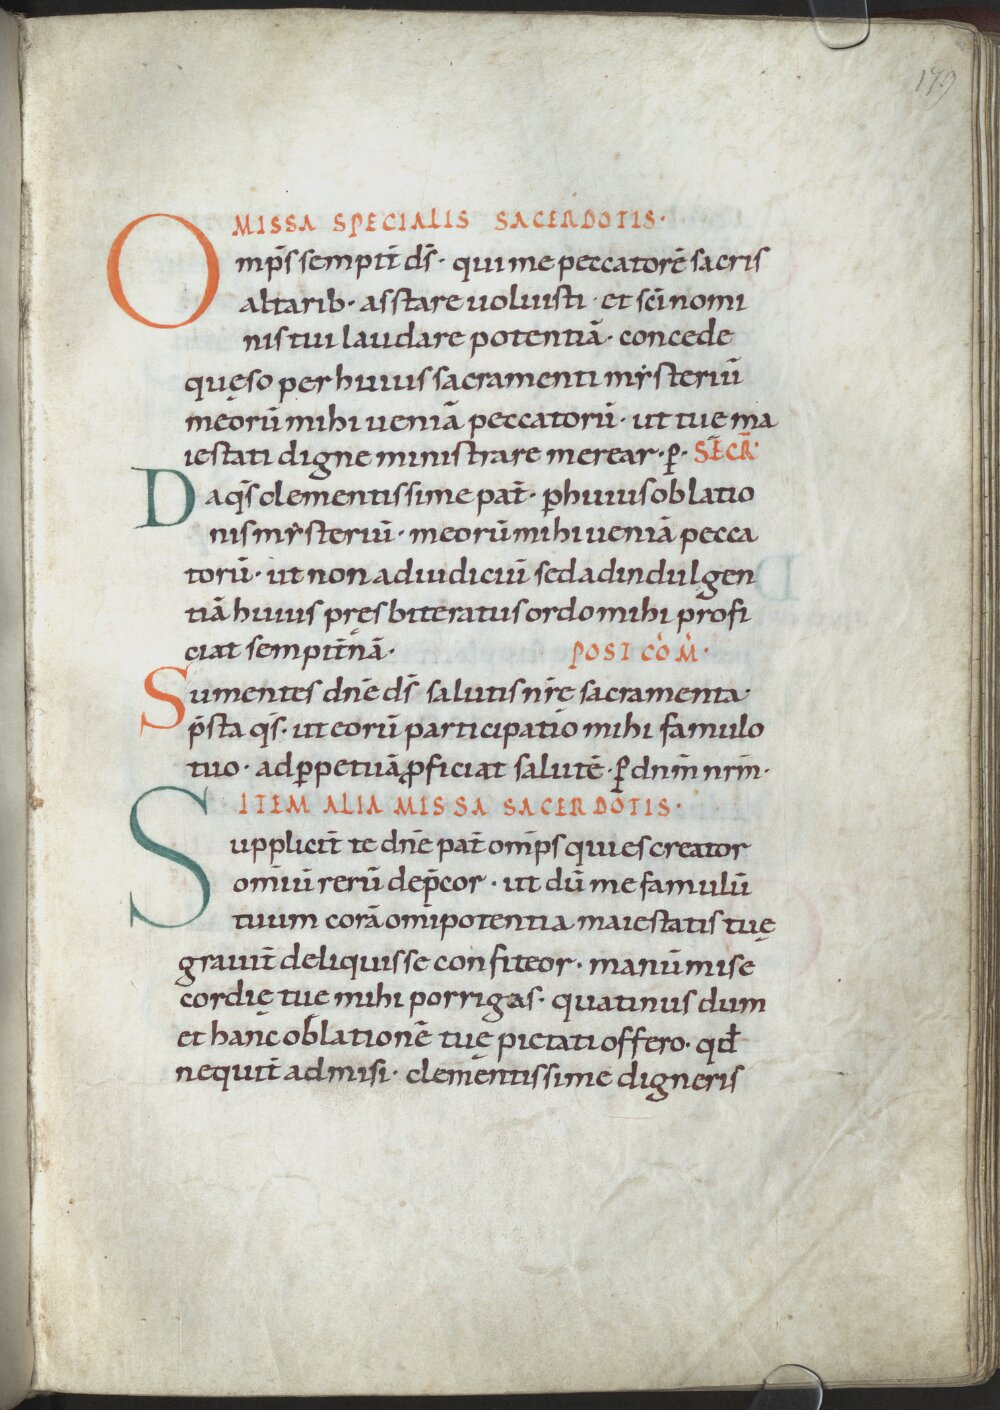 179
MISSA SPECIALIS SACERDOTIS·
Omp̄s sempit̄ ds̄· qui me peccatorē sacris
altarib· asstare uoluisti· et sc̄i nomi
nis tui laudare potentiā· concede
quęso per huius sacramenti mẏsteriū
meorū mihi ueniā peccatorū· ut tue ma
iestati digne ministrare merear· ꝑ· SĒCR̄·
Da qs̄ clementissime pat̄· ꝑ huius oblatio
nis mẏsteriū· meorū mihi ueniā pecca
torū· ut non ad iudiciū sed ad indulgen
tiā huius pręsbiteratus ordo mihi profi
ciat sempit̄nā· POST COM̄·
Sumentes dn̄e ds̄ salutis nr̄ę sacramenta·
p̄sta qs̄· ut eorū participatio mihi famulo
tuo· ad ꝑpetuā ꝓficiat salutē· ꝑ dnm̄ nrm̄·
ITEM ALIA MISSA SACERDOTIS·
Supplicit̄ te dn̄e pat̄ omp̄s qui es creator
omiū rerū dep̄cor· ut dū me famulū
tuum corā omīpotentia maiestatis tuę
grauit̄ deliquisse confiteor· manū mise
cordię tuę mihi porrigas· quatinus dum
et hanc oblationē tuę pietati offero· qđ
nequit̄ admisi· clementissime digneris